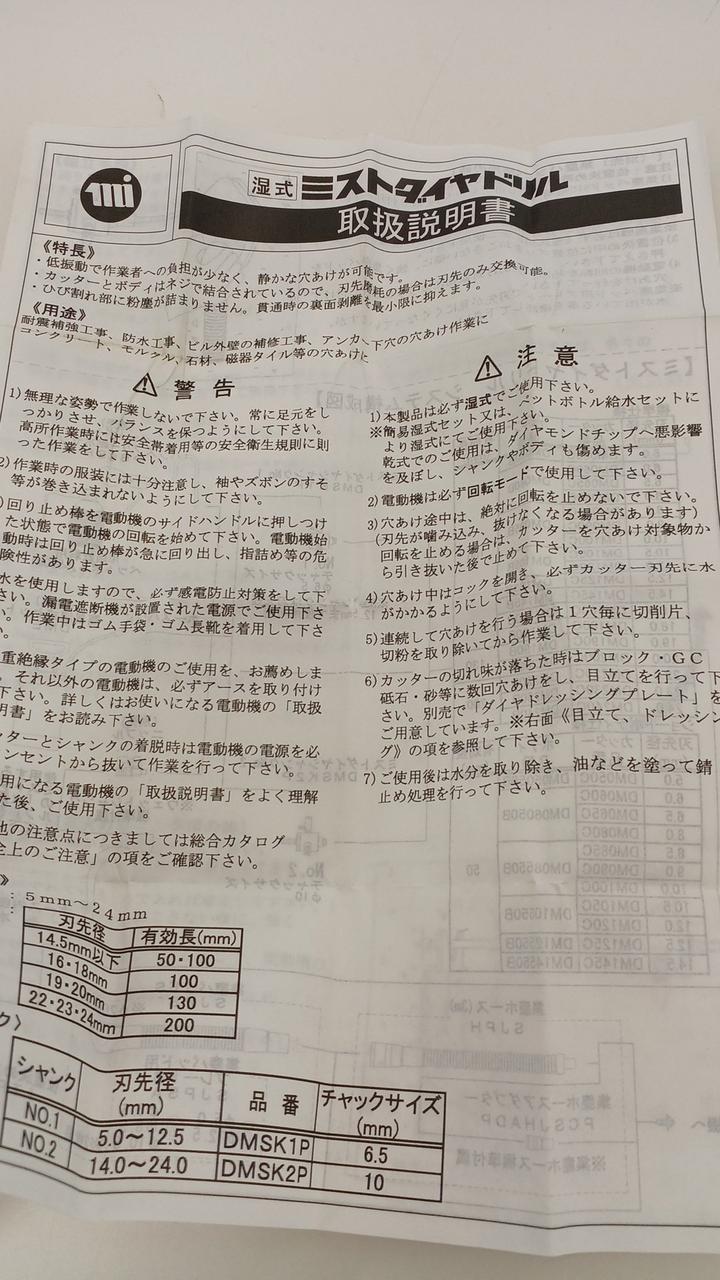 湿式 ミストダイヤドリル
取扱説明書
《特長》
・低振動で作業者への負担が少なく、静かな穴あけが可能です。
・カッターとボディはネジで結合されているので、刃先磨耗の場合は刃先のみ交換可能。
・ひび割れ部に粉塵が詰まりません。貫通時の裏面剥離を最小限に抑えます。
《用途》
耐震補強工事、防水工事、ビル外壁の補修工事、アンカー下穴の穴あけ作業に
コンクリート、モルタル、石材、磁器タイル等の穴あけに
警告
1)無理な姿勢で作業しないで下さい。常に足元をし
っかりさせ、バランスを保つようにして下さい。
高所作業時には安全帯着用等の安全衛生規則に則
った作業をして下さい。
2)作業時の服装には十分注意し、袖やズボンのすそ
等が巻き込まれないようにして下さい。
)回り止め棒を電動機のサイドハンドルに押しつけ
た状態で電動機の回転を始めて下さい。電動機始
動時は回り止め棒が急に回り出し、指詰め等の危
険性があります。
水を使用しますので、必ず感電防止対策をして下
さい。漏電遮断機が設置された電源でご使用下さ
い。作業中はゴム手袋・ゴム長靴を着用して下さ
い。
重絶縁タイプの電動機のご使用を、お薦めしま
。それ以外の電動機は、必ずアースを取り付け
下さい。詳しくはお使いになる電動機の「取扱
明書」をお読み下さい。
ッターとシャンクの着脱時は電動機の電源を必
ンセントから抜いて作業を行って下さい。
用になる電動機の「取扱説明書」をよく理解
た後、ご使用下さい。
他の注意点につきましては総合カタログ
全上のご注意」の項をご確認下さい。
注意
1)本製品は必ず湿式でご使用下さい。
※簡易湿式セット又は、ペットボトル給水セットに
より湿式にてご使用下さい。
乾式でのご使用は、ダイヤモンドチップへ悪影響
を及ぼし、シャンクやボディも傷めます。
2)電動機は必ず回転モードで使用して下さい。
3)穴あけ途中は、絶対に回転を止めないで下さい。
(刃先が噛み込み、抜けなくなる場合があります)
回転を止める場合は、カッターを穴あけ対象物か
ら引き抜いた後で止めて下さい。
4)穴あけ中はコックを開き、必ずカッター刃先に水
がかかるようにして下さい。
5)連続して穴あけを行う場合は1穴毎に切削片、
切粉を取り除いてから作業して下さい。
6)カッターの切れ味が落ちた時はブロック・GC
砥石・砂等に数回穴あけをし、目立てを行って下
さい。別売で「ダイヤドレッシングプレート」を
ご用意しています。※右面《目立て、ドレッシン
グ》の項を参照して下さい。
7)ご使用後は水分を取り除き、油などを塗って錆
止め処理を行って下さい。
》
:5mm～24mm
:
刃先径 有効長(mm)
14.5mm以下 50・100
16・18mm 100
19・20mm 130
22・23・24mm 200
ク〉
シャンク 刃先径(mm) 品番 チャックサイズ(mm)
NO.1 5.0～12.5 DMSK1P 6.5
NO.2 14.0～24.0 DMSK2P 10